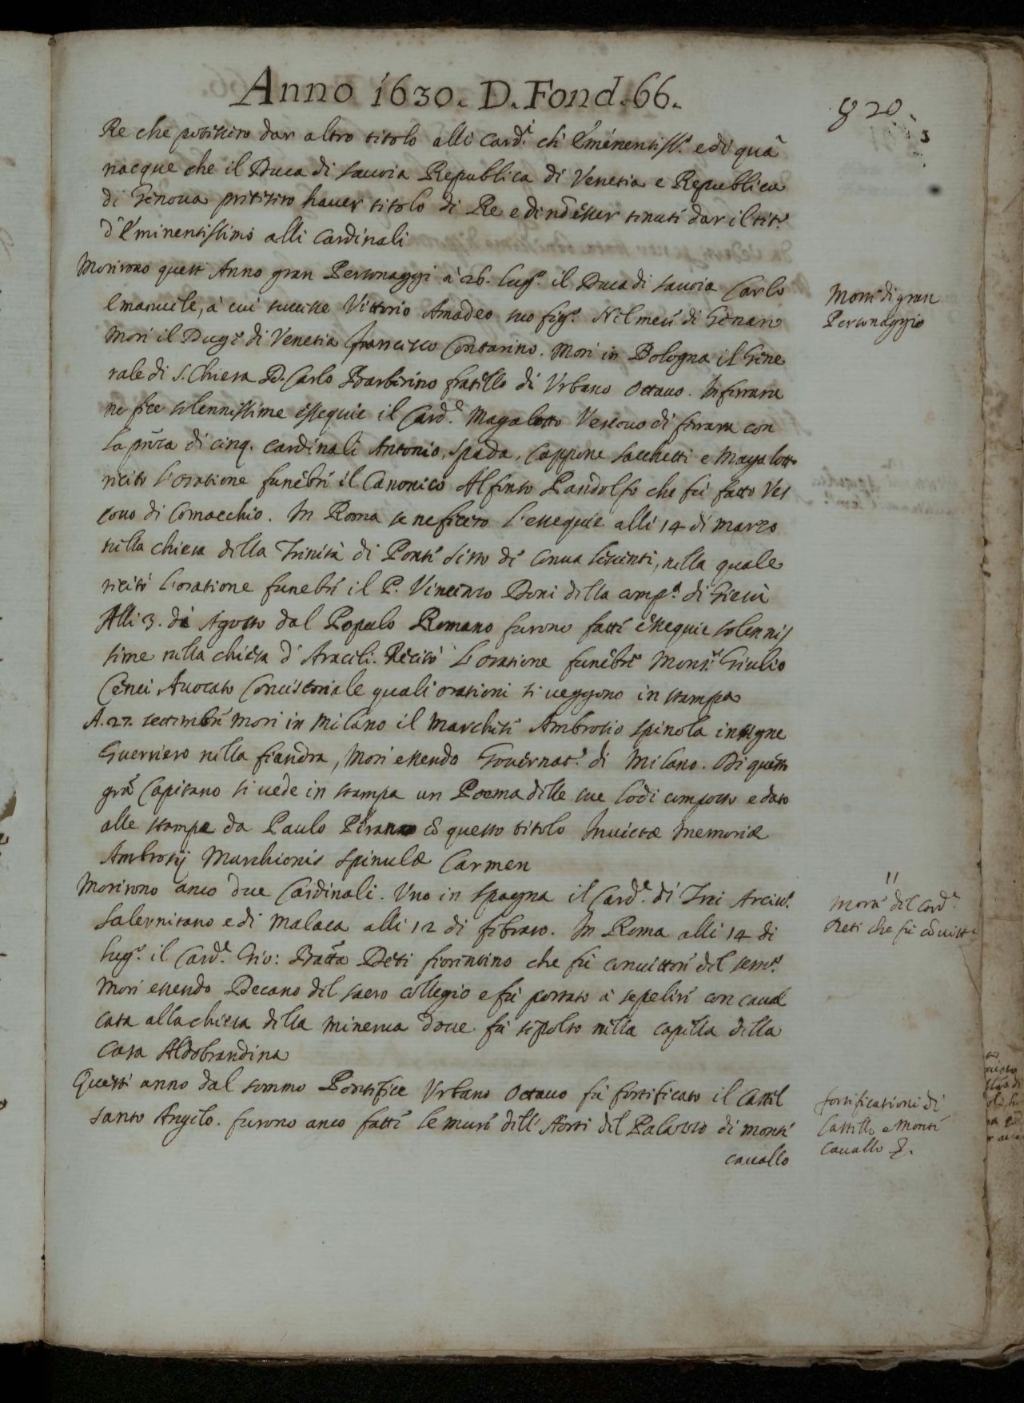 Anno 1630. D. Fond. 66.
820.
Re che potessero dar altro titolo alli Card.i ch'Eminentiss.i e di quà
nacque che il Duca di Savoia Republica di Venetia e Republica
di Genova pretesero haver titolo di Re e di nõ esser tenuti dar il tit.o
d'Eminentissimo alli Cardinali
Morirono quest'Anno gran Personaggi à 26. lug.o il Duca di Savoia Carlo
Emanuele, à cui successe Vittorio Amadeo suo fig.o Nel mese di Genaro
Morì il Duge di Venetia Francesco Contarino. Morì in Bologna il Gene
rale di S. Chiesa D. Carlo Barberino fratello di Urbano Ottavo. In ferrara
ne fece solennissime essequie il Card.e Magalotto Vescovo di ferrara con
la pñza di cinq. Cardinali Antonio, Spada, Cappone Sacchetti e Magalotto
recitò l'oratione funebre il Canonico Alfonso Pandolfo che fù fatto Ves
covo di Comacchio. In Roma se ne fecero l'essequie alli 14 di marzo
nella chiesa della Trinità di Ponte Sisto de Convalescenti, nella quale
recitò l'oratione funebre il P. Vincenzo Doni della comp.a di Giesù
Alli 3. di Agosto dal Popolo Romano furono fatte essequie solennis
sime nella chiesa d'Araceli. Recitò l'oratione funebre Mons.r Giulio
Cenci Avocato Concistoriale quali orationi si veggono in stampa
A. 27. settembre Morì in Milano il Marchese Ambrosio Spinola insigne
Guerriero nella fiandra, Morì essendo Governat.e di Milano. Di questo
grã Capitano si vede in stampa un Poema delle sue lodi composto e dato
alle stampe da Paulo cõ questo titolo Invictæ Memoriæ
Ambrosij Marchionis Spinulæ Carmen
Morirono anco due Cardinali. Uno in Spagna il Card.e di Trei Arciv.o
Salernitano e di Malaca alli 12 di febraro. In Roma alli 14 di
lug.o il Card.e Gio: Batta Deti fiorentino che fù convittore del sem.o
Morì essendo Decano del sacro collegio e fù portato à sepelire con caval
cata alla chiesa della Minerva dove fù sepolto nella capella della
Casa Aldobrandina
Quest'anno dal sommo Pontefice Urbano Ottavo fù fortificato il Castel
santo Angelo. furono anco fatte le mura dell'Horti del Palazzo di monte
cavallo
Morte di gran
Personaggio
Morte del Card.e
Deti che fù cõvitt.e
fortificationi di
Castello e Monte
Cavallo